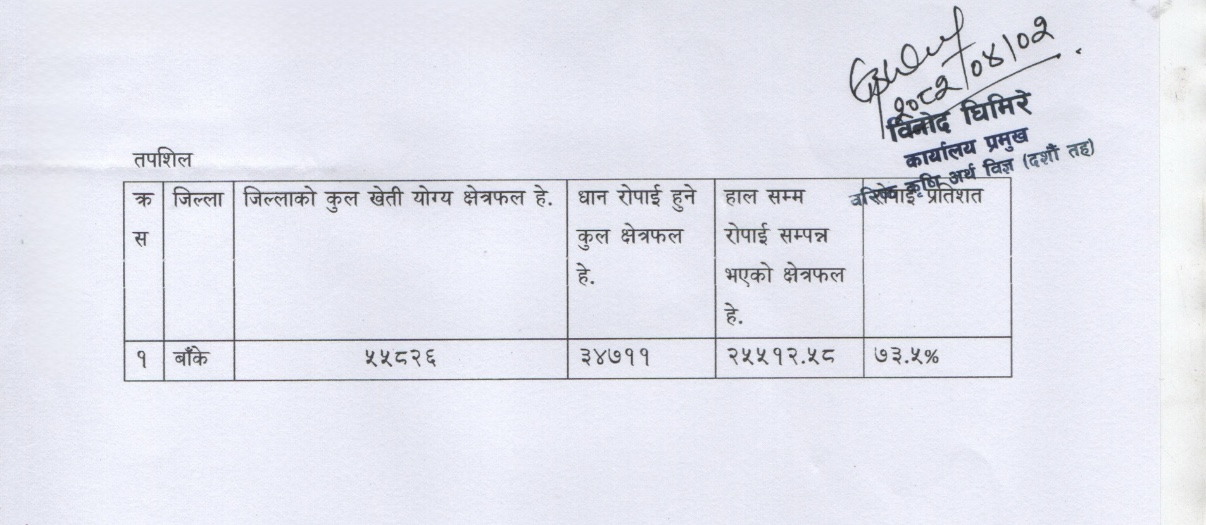 २०८२/०४/०२
विनोद घिमिरे
कार्यालय प्रमुख
वरिष्ठ कृषि अर्थ विज्ञ (दशौं तह)
तपशिल
क्र स
जिल्ला
जिल्लाको कुल खेती योग्य क्षेत्रफल हे.
धान रोपाई हुने
कुल क्षेत्रफल
हे.
हाल सम्म
रोपाई सम्पन्न
भएको क्षेत्रफल
हे.
रोपाई प्रतिशत
१ बाँके ५५८२६ ३४७११ २५५१२.५८ ७३.५%